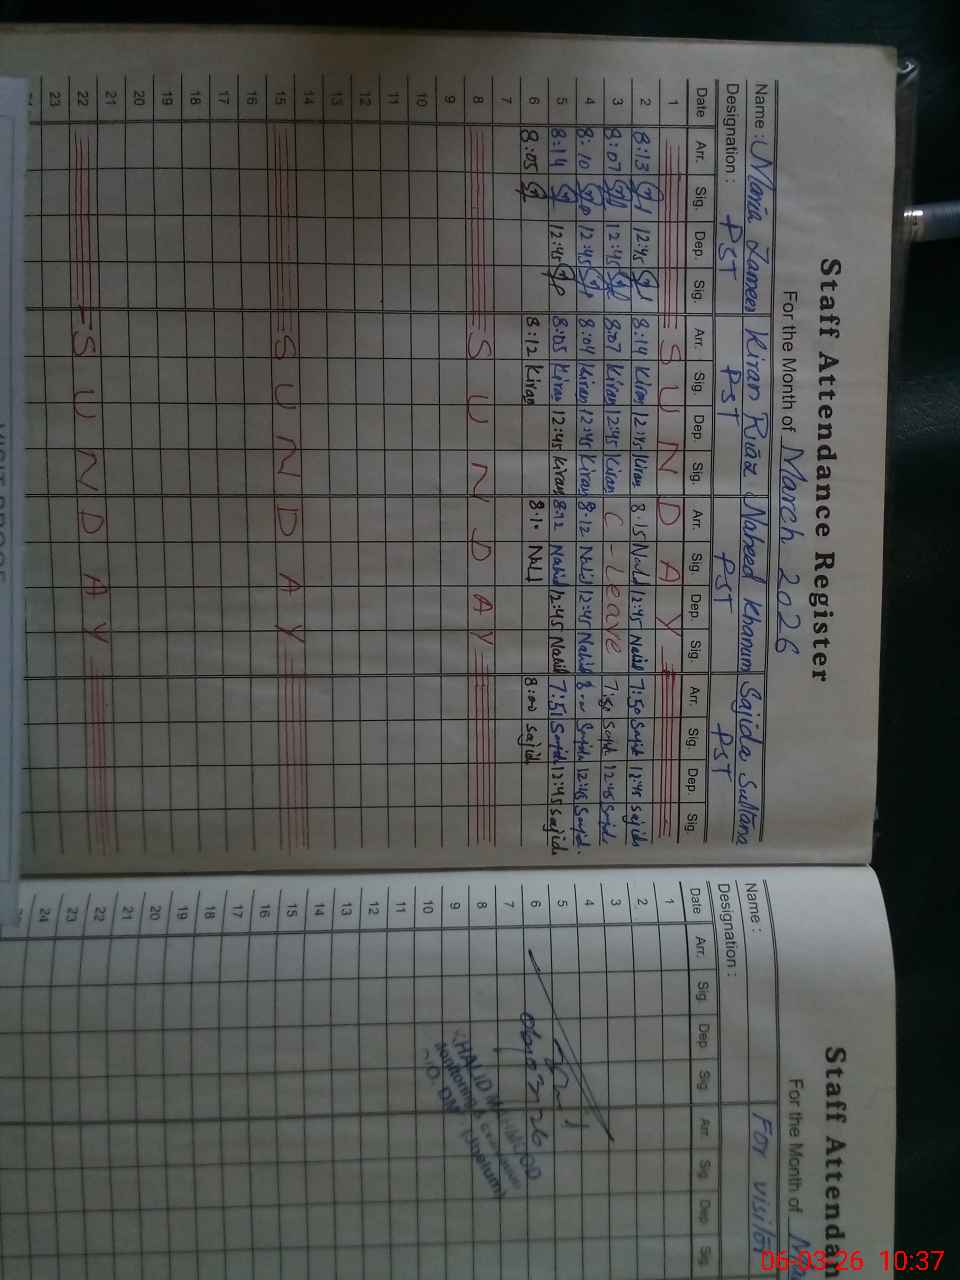 Staff Attendance Register
For the Month of March 2026
Name : Maria Zameer Kiran Riaz Naheed Khanum Sajida Sultana
Designation : PST PST PST PST
Date Arr. Sig. Dep. Sig. Arr. Sig. Dep. Sig. Arr. Sig. Dep. Sig. Arr. Sig. Dep. Sig.
1 SUNDAY
2 8:13 12:45 8:14 Kiran 12:45 Kiran 8:15 Nahid 12:45 Nahid 7:50 Sajida 12:45 Sajida
3 8:07 12:45 8:07 Kiran 12:45 Kiran C - Leave 7:50 Sajida 12:45 Sajida
4 8:10 12:45 8:04 Kiran 12:45 Kiran 8:12 Nahid 12:45 Nahid 8:00 Sajida 12:45 Sajida
5 8:14 12:45 8:05 Kiran 12:45 Kiran 8:12 Nahid 12:45 Nahid 7:51 Sajida 12:45 Sajida
6 8:05 8:12 Kiran 8:10 Nahid 8:00 Sajida
7
8 SUNDAY
9
10
11
12
13
14
15 SUNDAY
16
17
18
19
20
21
22 SUNDAY
23
Staff Attendan
For the Month of
Name : For visitor
Designation :
Date Arr. Sig. Dep. Sig. Arr. Sig. Dep. Sig.
1
2
3
4
5
6 06/03/26
7
8
9
10
11
12
13
14
15
16
17
18
19
20
21
22
23
24
KHALID MAHMOOD
06-03-26 10:37